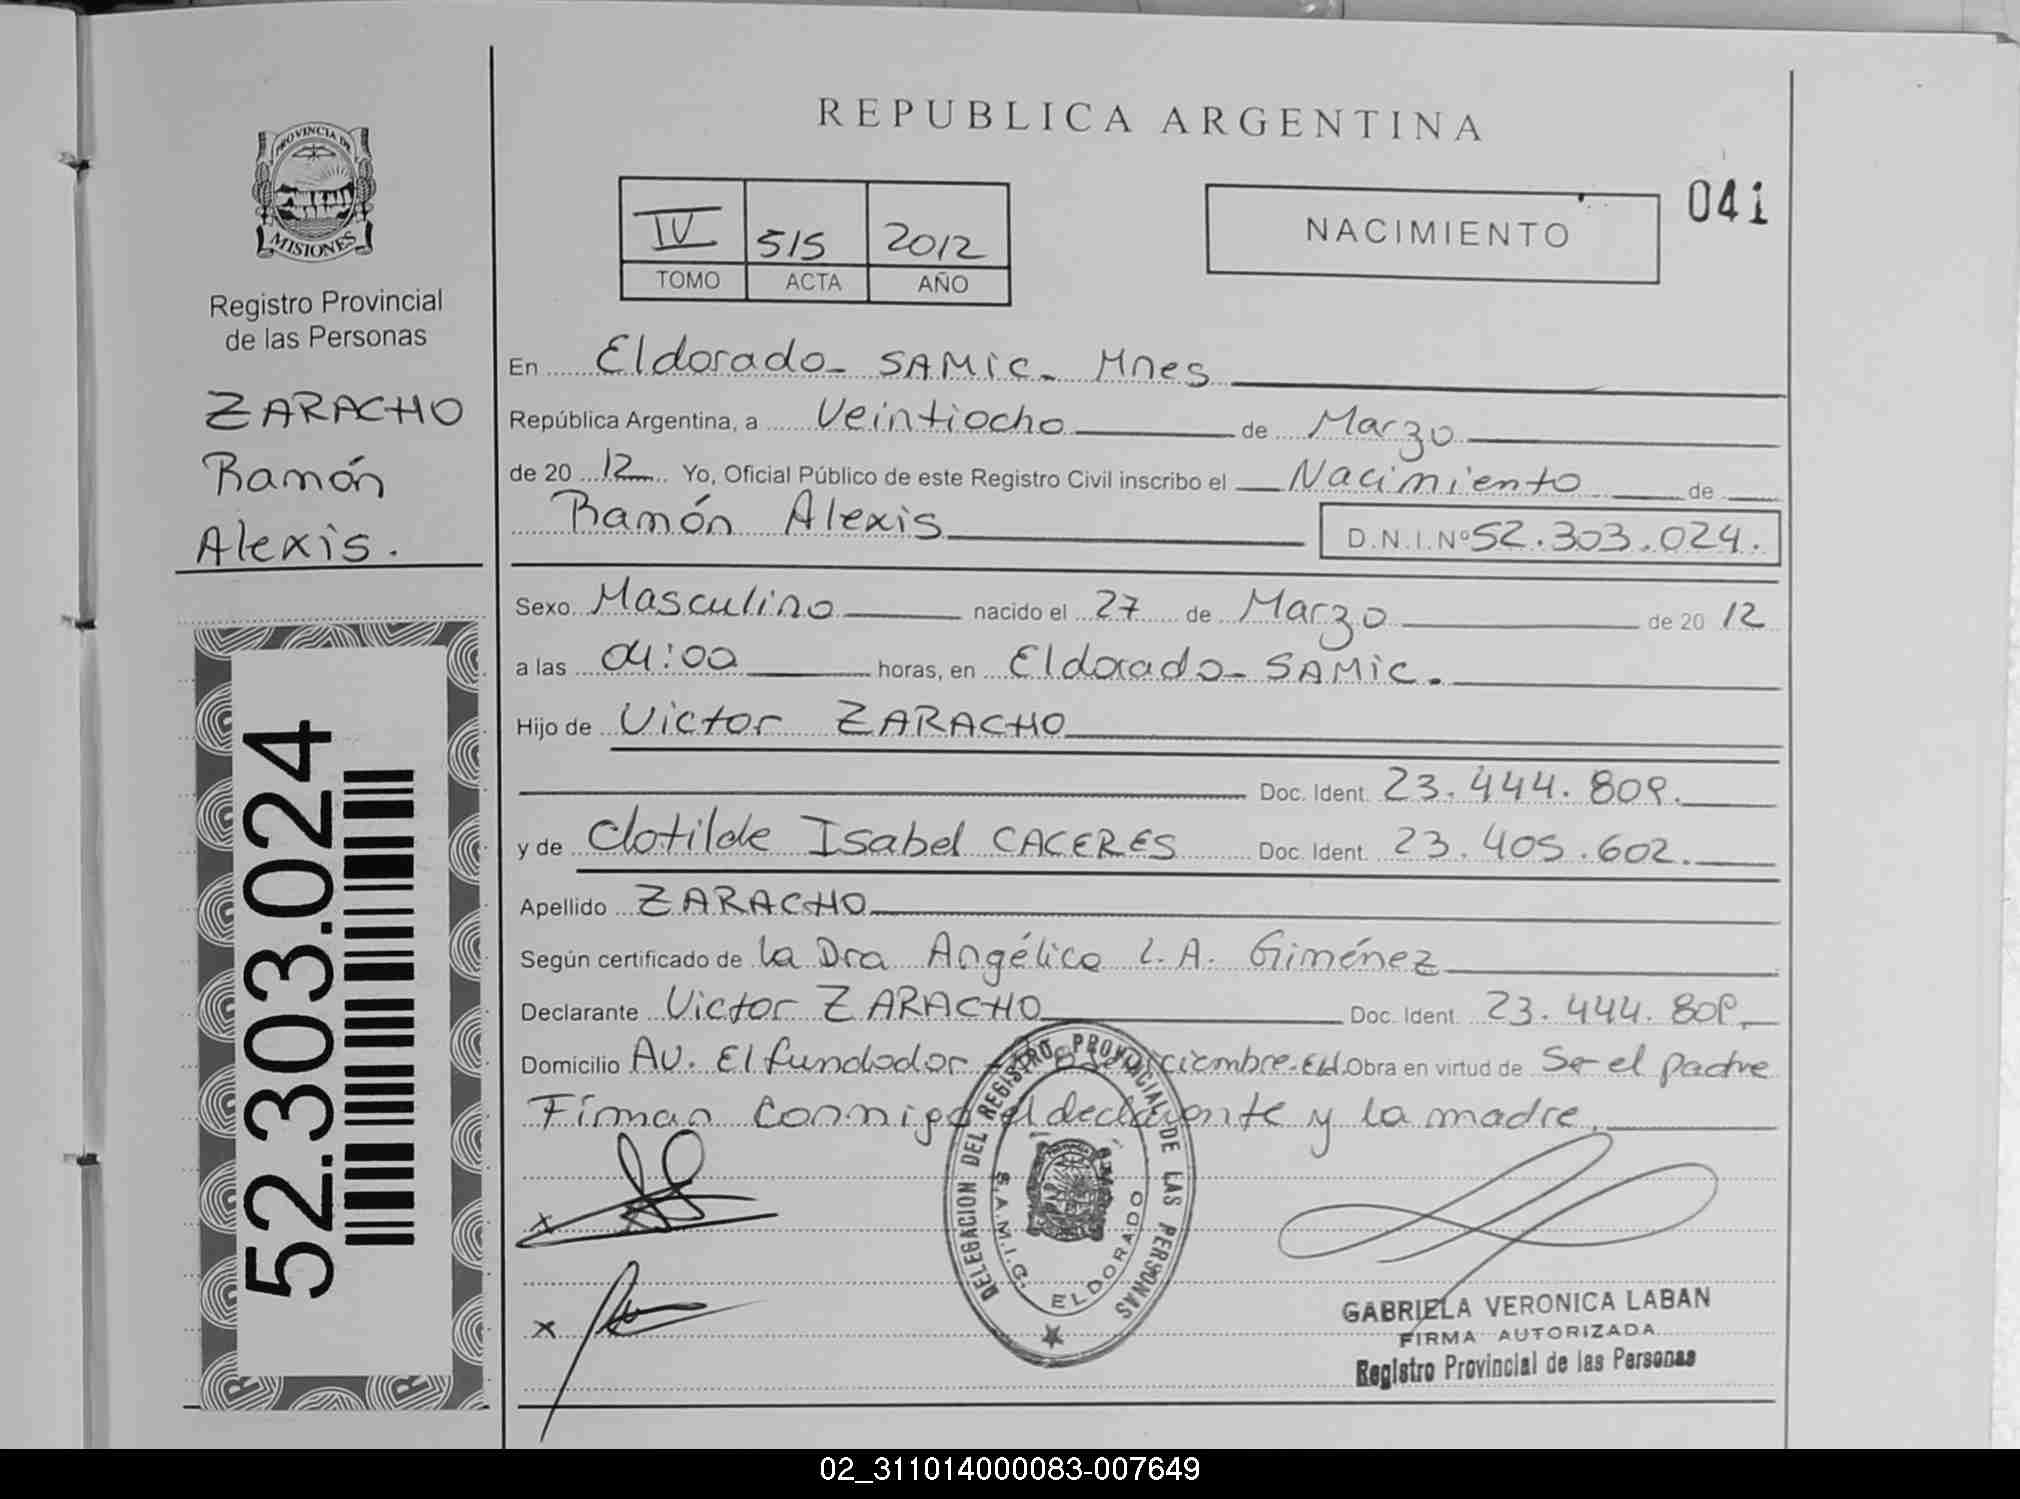 REPUBLICA ARGENTINA
PROVINCIA DE
MISIONES
Registro Provincial
de las Personas
ZARACHO
Ramón
Alexis.
52.303.024
IV 515 2012
TOMO ACTA AÑO
NACIMIENTO
041
En Eldorado - SAMIC - Mnes
República Argentina, a Veintiocho de Marzo
de 20 12 Yo, Oficial Público de este Registro Civil inscribo el Nacimiento de
Ramón Alexis D.N.I.Nº 52.303.024.
Sexo Masculino nacido el 27 de Marzo de 20 12
a las 04:00 horas, en Eldorado - SAMIC.
Hijo de Victor ZARACHO
Doc. Ident. 23.444.809.
y de Clotilde Isabel CACERES Doc. Ident. 23.405.602.
Apellido ZARACHO
Según certificado de la Dra Angélica L.A. Giménez
Declarante Victor ZARACHO Doc. Ident. 23.444.809.
Domicilio AV. El fundador Eld. Obra en virtud de Ser el padre
Firman conmigo el declarante y la madre.
DELEGACION DEL REGISTRO PROVINCIAL DE LAS PERSONAS
S.A.M.I.C. ELDORADO
GABRIELA VERONICA LABAN
FIRMA AUTORIZADA
Registro Provincial de las Personas
02_311014000083-007649